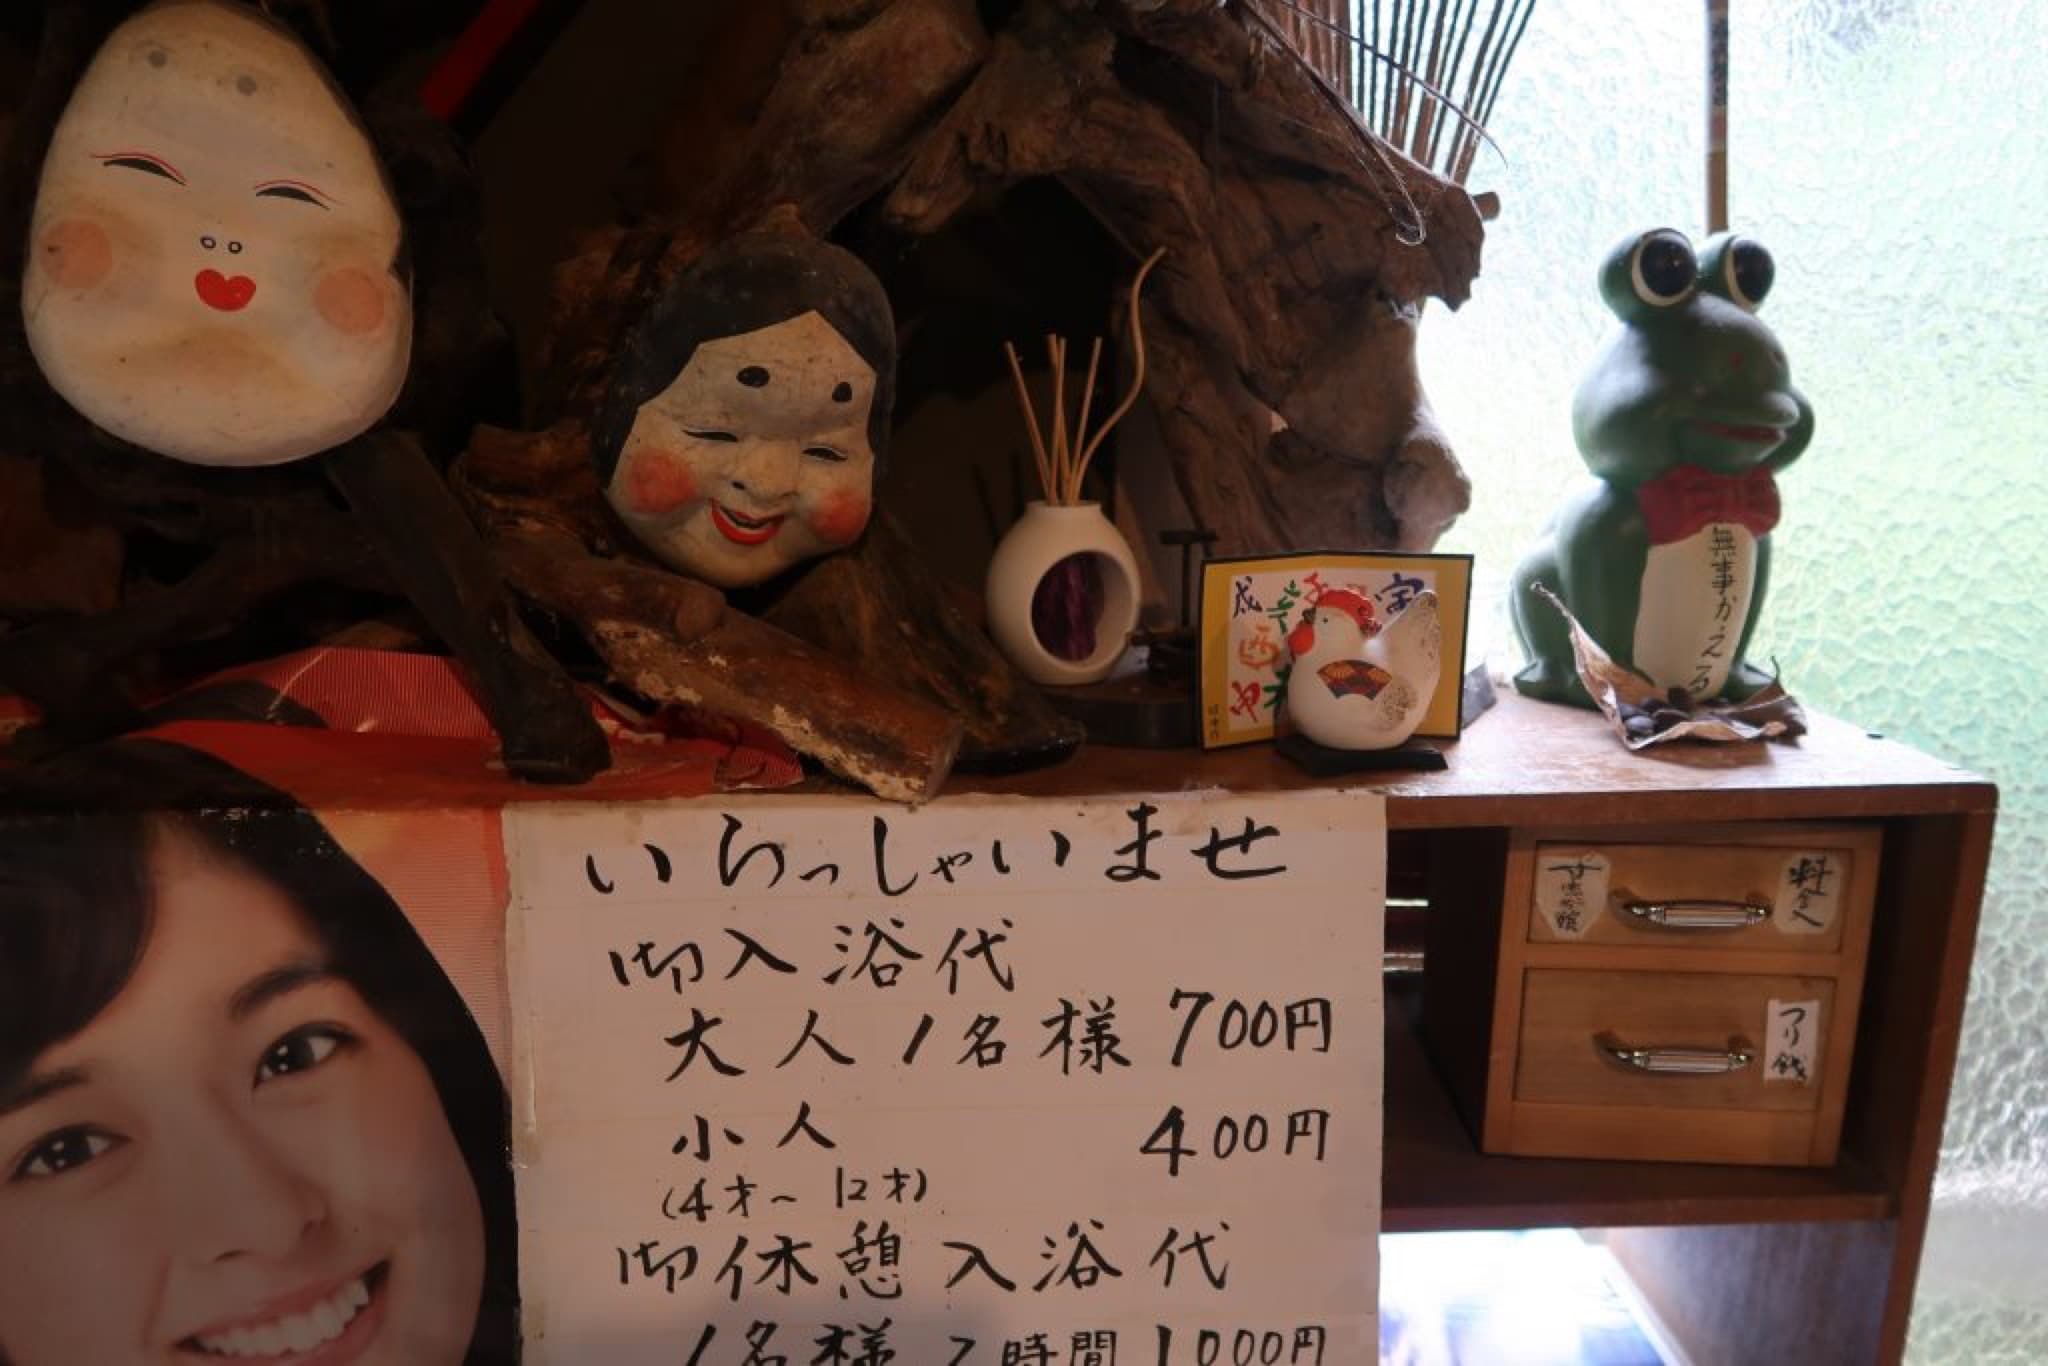 いらっしゃいませ
御入浴代
大人1名様 700円
小人 400円
(4才〜12才)
御休憩入浴代
1名様 2時間 1000円
無事かえる
戌
酉
申
料金入
つり銭